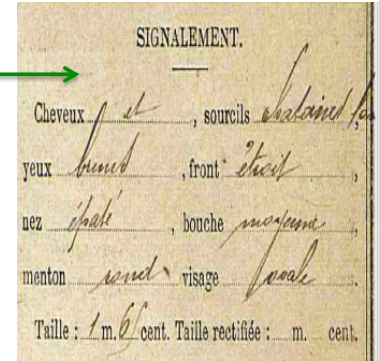 SIGNALEMENT.
Cheveux et , sourcils chatains
yeux bruns , front étroit ,
nez épaté , bouche moyenne ,
menton rond visage ovale .
Taille : 1 m. 65 cent. Taille rectifiée : m. cent.